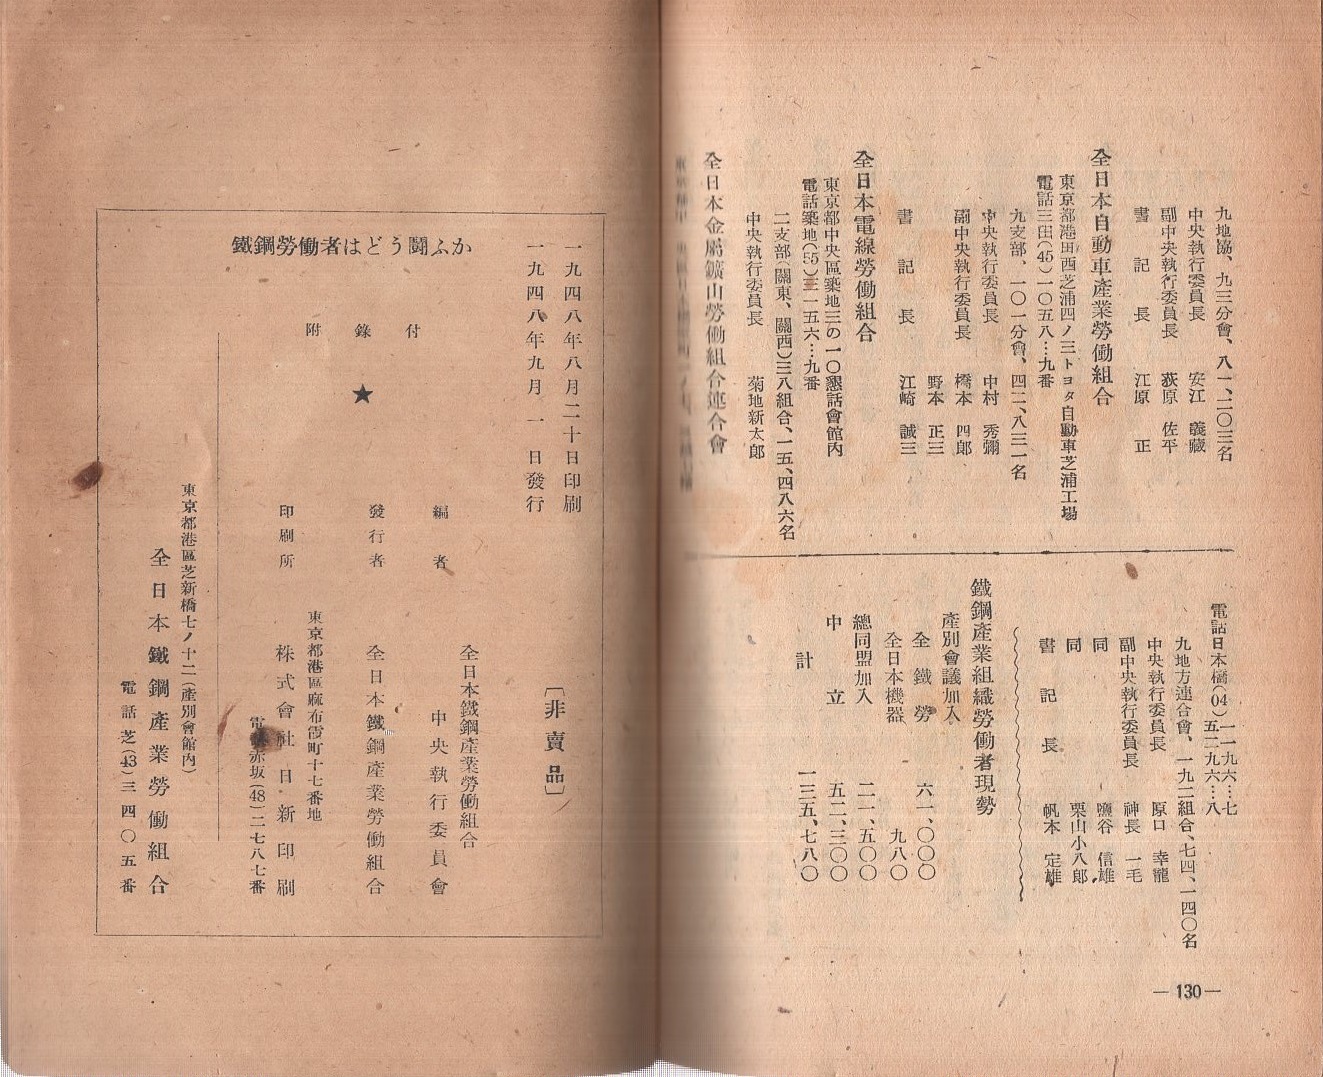 九地協、九三分會、八一、二〇三名
中央執行委員長　安江　義藏
副中央執行委員長　荻原　佐平
書記長　江原　正
全日本自動車産業勞働組合
東京都港田西芝浦四ノ三トヨタ自動車芝浦工場
電話三田(45)一〇五八…九番
九支部、一〇一分會、四二、八三一名
中央執行委員長　中村　秀彌
副中央執行委員長　橋本　四郎
野本　正三
書記長　江崎　誠三
全日本電線勞働組合
東京都中央區築地三の一〇懇話會館内
電話築地(55)三一五六…九番
二支部(關東、關西)三八組合、一五、四八六名
中央執行委員長　菊地新太郎
全日本金屬鑛山勞働組合連合會
電話日本橋(04)一一九六…七
五二九六…八
九地方連合會、一九二組合、七四、一四〇名
中央執行委員長　原口　幸寵
副中央執行委員長　神長　一毛
同　鹽谷　信雄
同　栗山小八郎
書記長　帆本　定雄
鐵鋼産業組織勞働者現勢
産別會議加入
全鐵勞　六一、〇〇〇
全日本機器　九八〇
總同盟加入　二一、五〇〇
中立　五二、三〇〇
計　一三五、七八〇
—130—
鐵鋼勞働者はどう鬪ふか
一九四八年八月二十日印刷
一九四八年九月一日發行
〔非賣品〕
附錄付
★
編者　全日本鐵鋼産業勞働組合
中央執行委員會
發行者　全日本鐵鋼産業勞働組合
東京都港區麻布霞町十七番地
印刷所　株式會社日新印刷
赤坂(48)二七八七番
東京都港區芝新橋七ノ十二(産別會館内)
全日本鐵鋼産業勞働組合
電話芝(43)三四〇五番